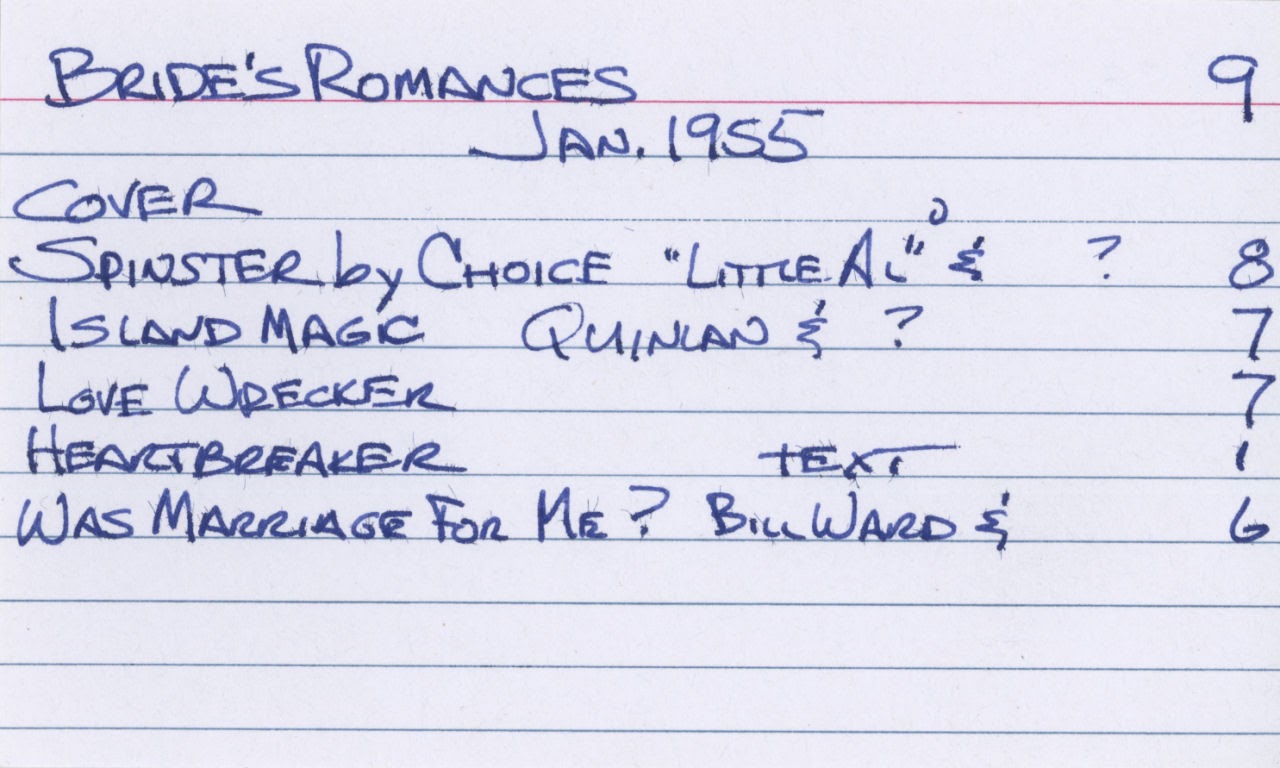 BRIDE'S ROMANCES 9
JAN. 1955
COVER
SPINSTER by CHOICE "LITTLE AL" & ? 8
ISLAND MAGIC QUINLAN & ? 7
LOVE WRECKER 7
HEARTBREAKER TEXT 1
WAS MARRIAGE FOR ME? BILL WARD & 6